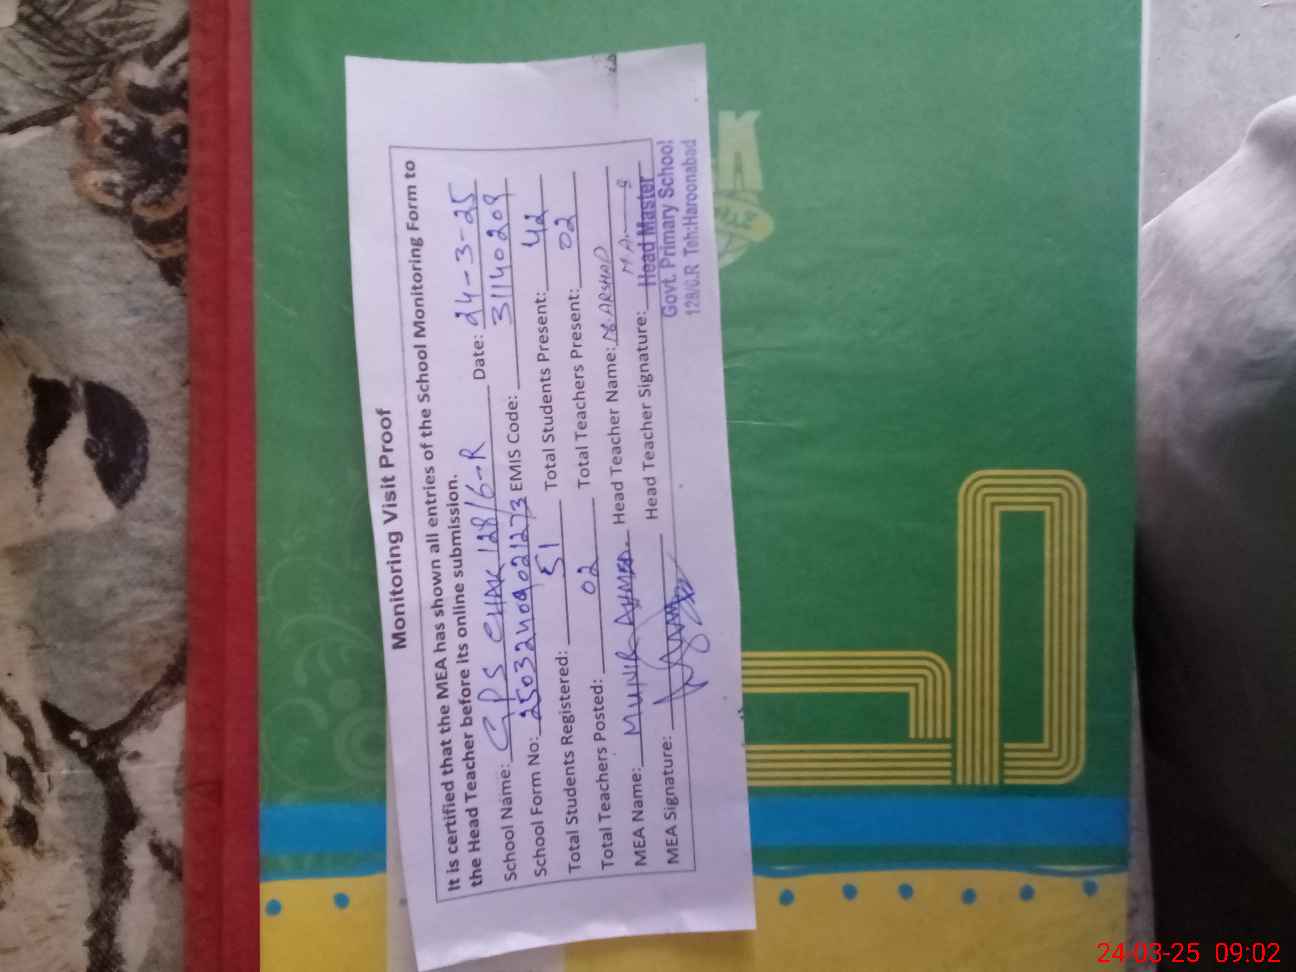 Monitoring Visit Proof
It is certified that the MEA has shown all entries of the School Monitoring Form to
the Head Teacher before its online submission.
School Name: GPS CHAK 128/6-R Date: 24-3-25
School Form No: 25032409021273 EMIS Code: 31140209
Total Students Registered: 51 Total Students Present: 42
Total Teachers Posted: 02 Total Teachers Present: 02
MEA Name: MUNIR AHMED Head Teacher Name: M. ARSHAD
MEA Signature: Head Teacher Signature:
Head Master
Govt. Primary School
128/6.R Teh:Haroonabad
24-03-25 09:02